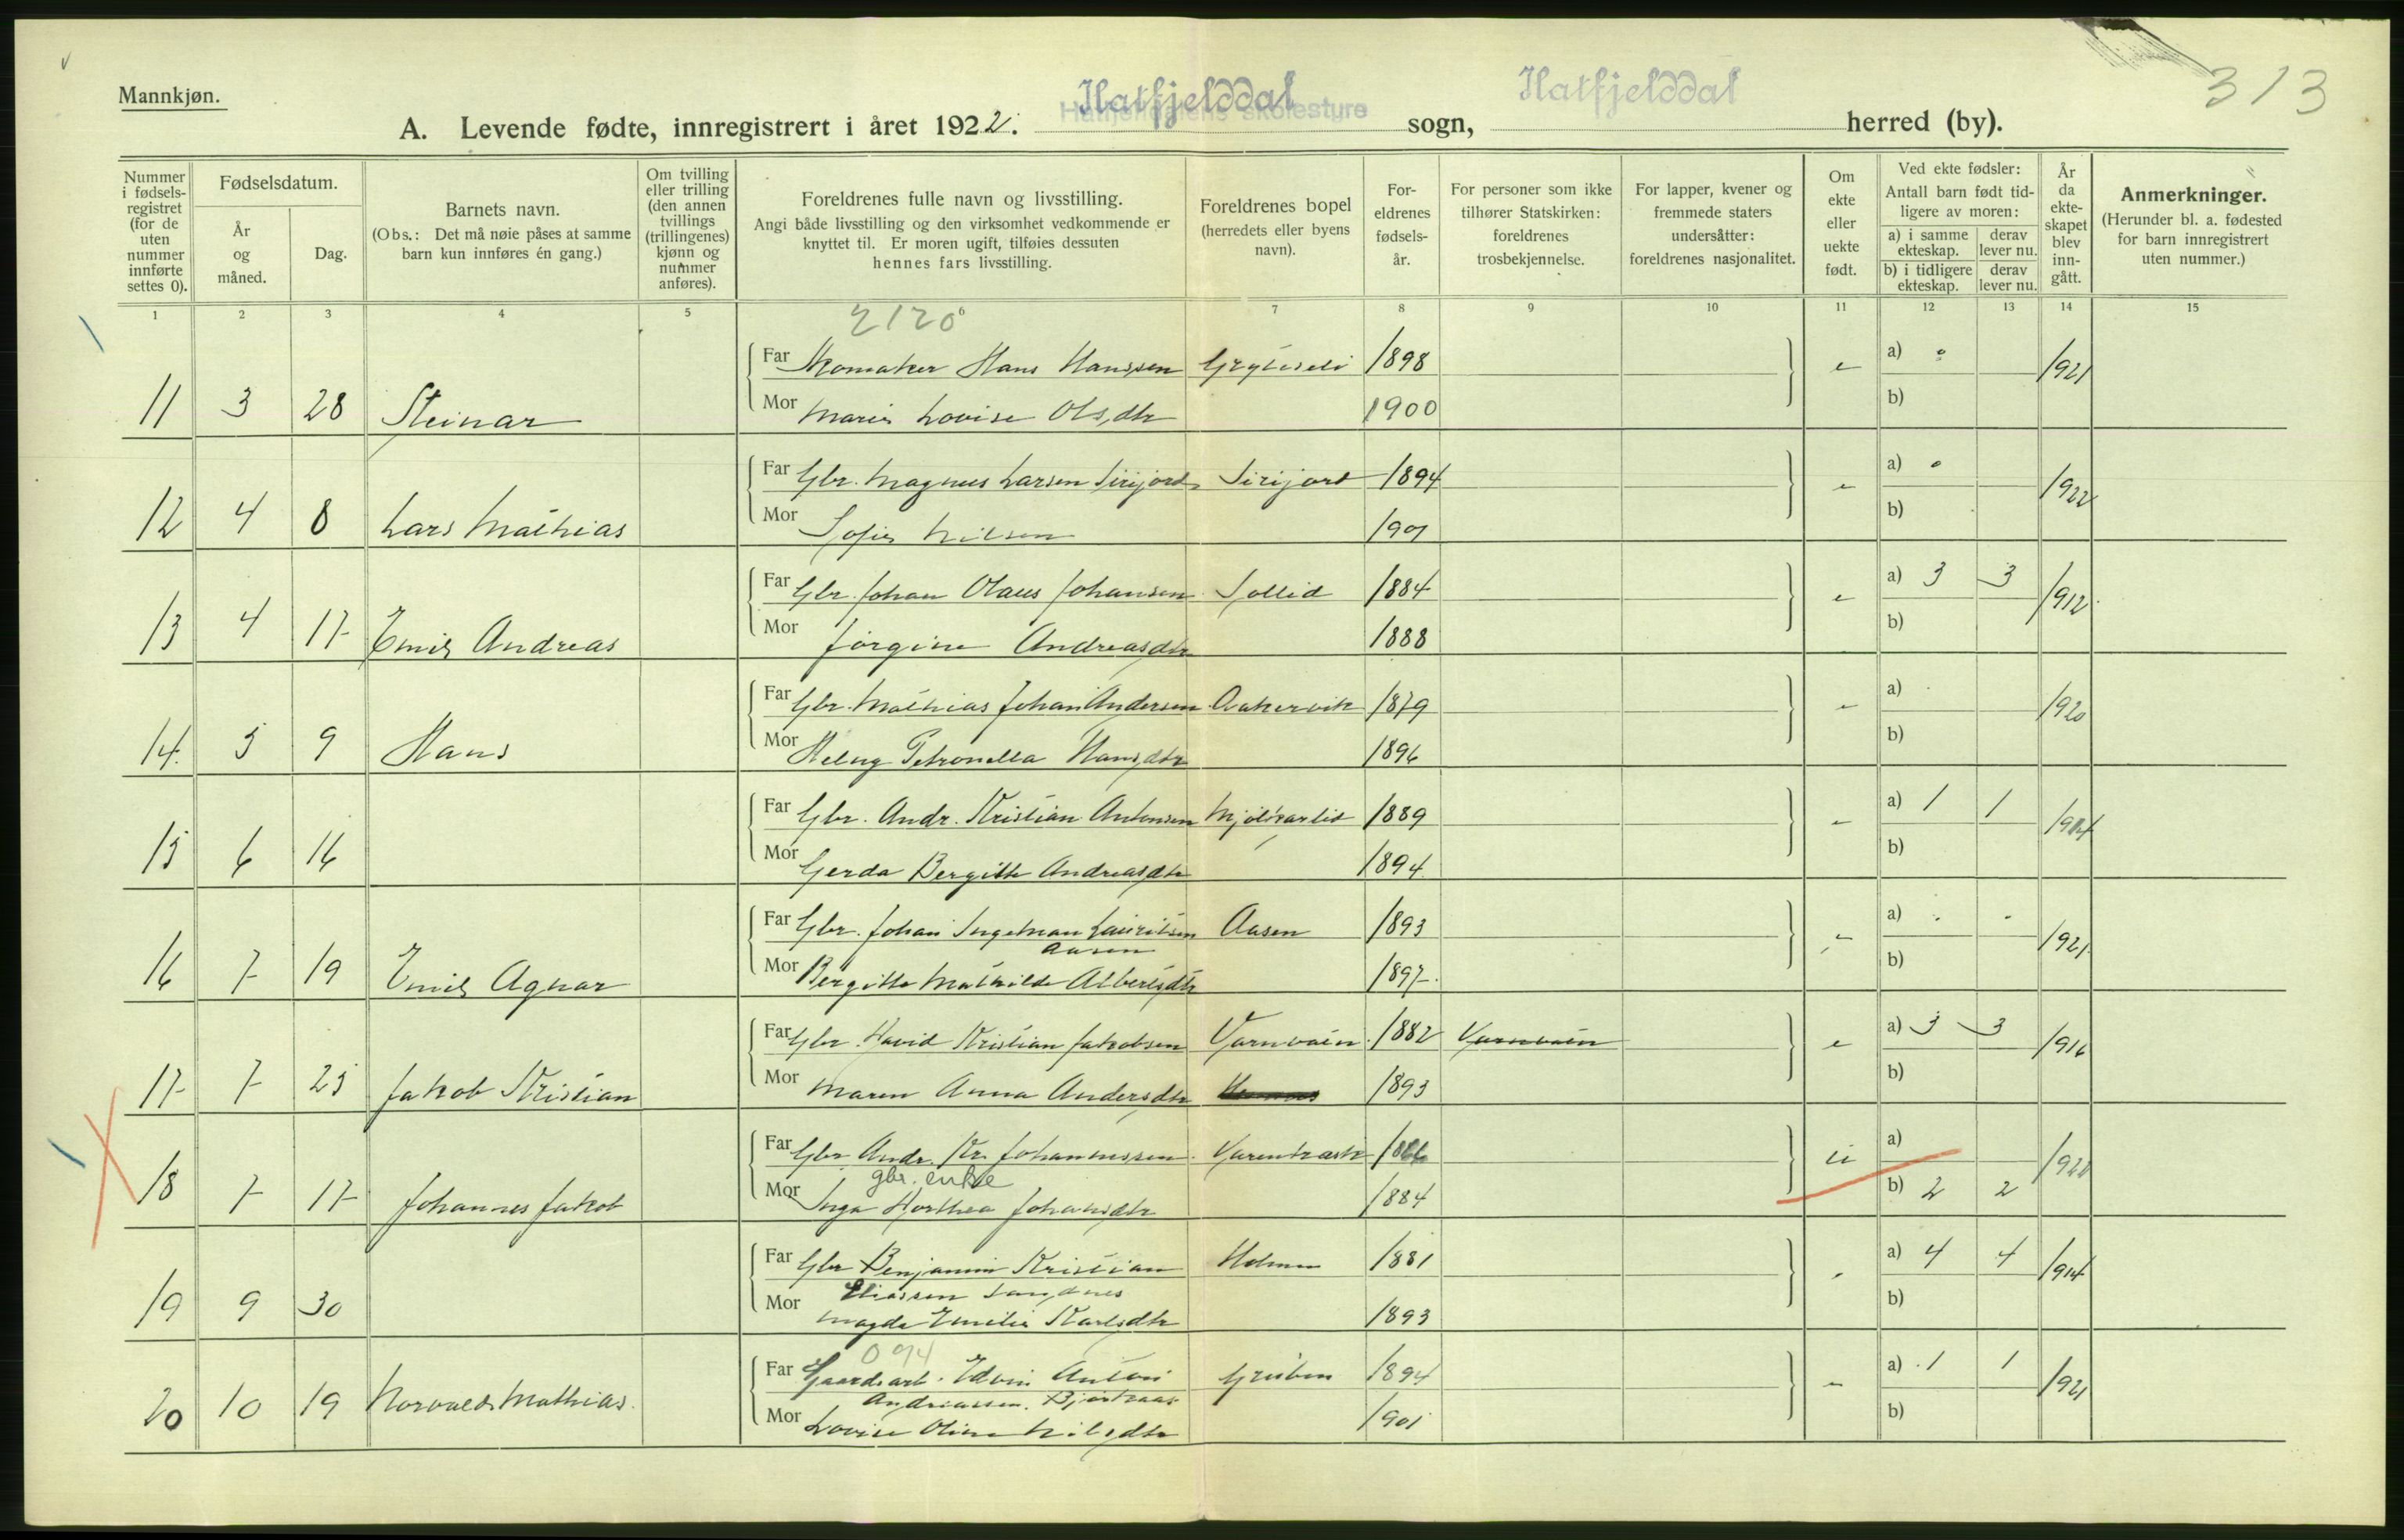 Mannkjøn.
313
Hatfjelddal
Hatfjelddal
A. Levende fødte, innregistrert i året 1922. sogn, herred (by).
Nummer i fødsels-registret (for de uten nummer innførte settes 0).
Fødselsdatum.
År og måned.
Dag.
Barnets navn.
(Obs.: Det må nøie påses at samme barn kun innføres én gang.)
Om tvilling eller trilling (den annen tvillings (trillingenes) kjønn og nummer anføres).
Foreldrenes fulle navn og livsstilling.
Angi både livsstilling og den virksomhet vedkommende er knyttet til. Er moren ugift, tilføies dessuten hennes fars livsstilling.
Foreldrenes bopel (herredets eller byens navn).
For-eldrenes fødsels-år.
For personer som ikke tilhører Statskirken: foreldrenes trosbekjennelse.
For lapper, kvener og fremmede staters undersåtter: foreldrenes nasjonalitet.
Om ekte eller uekte født.
Ved ekte fødsler: Antall barn født tid-ligere av moren:
a) i samme ekteskap.
derav lever nu.
b) i tidligere ekteskap.
derav lever nu.
År da ekte-skapet blev inn-gått.
Anmerkninger.
(Herunder bl. a. fødested for barn innregistrert uten nummer.)
1 2 3 4 5 7 8 9 10 11 12 13 14 15
2120
Far Skomaker Hans Hanssen 1898 e a) 0 1921
11 3 28 Steinar Mor Marie Lovise Olsdtr 1900 b)
Far Gbr. Magnus Larsen Sirijord Sirijord 1894 a) 0 1922
12 4 8 Lars Mathias Mor Sofie Nilsen 1901 b)
Far Gbr. Johan Olaus Johansen Sollid 1884 e a) 3 3 1912
13 4 17 Emil Andreas Mor Jørgine Andreasdtr 1888 b)
Far Gbr. Mathias Johan Andersen Aakervik 1879 a) 1920
14 5 9 Hans Mor Helug Petronella Hansdtr 1896 b)
Far Gbr. Andr. Kristian Antonsen Mjölkarlid 1889 a) 1 1
15 6 16 Mor Gerda Bergitte Andreasdtr 1894 b)
Far Gbr. Johan Ingelman Lauritsen Aasen 1893 a) 1921
Aasen
16 7 19 Emil Agnar Mor Bergitte Mathilde Albertsdtr 1897 b)
Far Gbr. Havid Kristian Jakobsen Varnvatn 1882 Varnvatn e a) 3 3 1916
17 7 25 Jakob Kristian Mor Maren Anna Andersdtr 1893 b)
Far Gbr Andr. Kr. Johannessen Varentræsk u a)
gbr. enke
18 7 17 Johannes Jakob Mor Inga Dorthea Johansdtr 1884 b) 2 2
Far Gbr Benjamin Kristian Holmen 1881 a) 4 4 1914
Eliassen Sandnes
19 9 30 Mor Magda Emilie Karlsdtr 1893 b)
094
Far Gaardsarb. Edvin Anton Gruben 1894 a) 1 1 1921
Andreassen
20 10 19 Norvald Mathias Mor Lovise Oline Nilsdtr 1901 b)